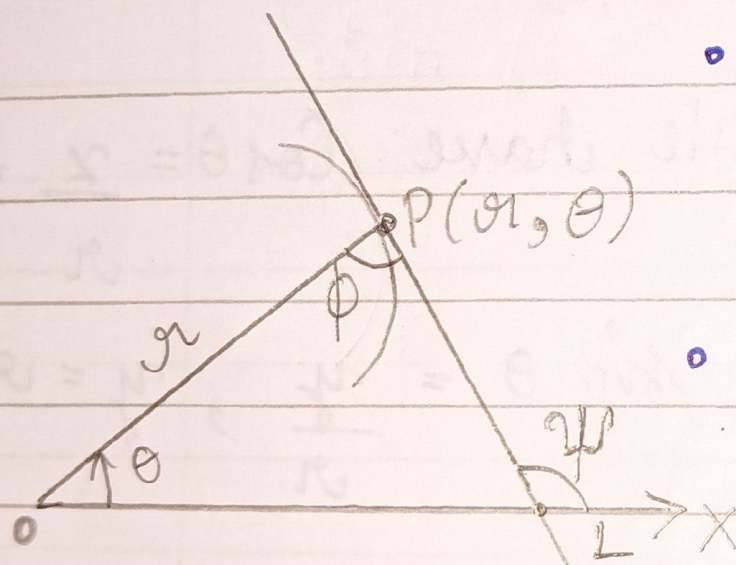 P(r, θ)
ϕ
r
θ
ψ
O
L
X